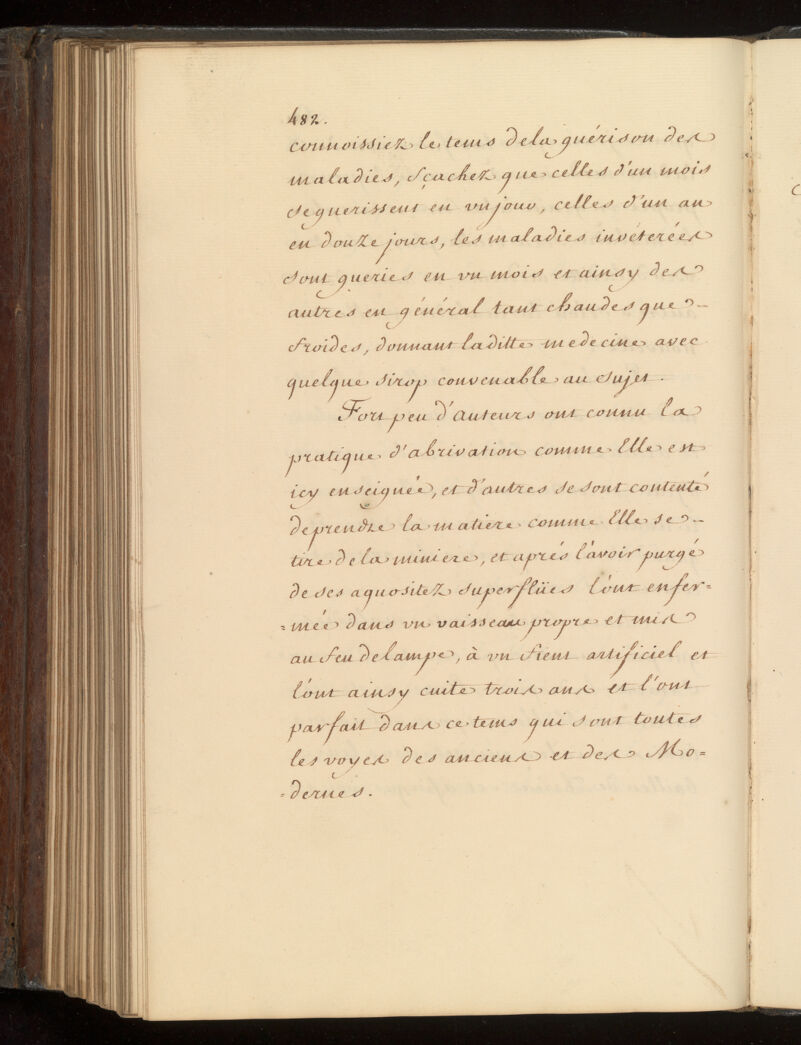 482.
connoissiez le tems dela guérison des
maladies, sçachez que celles d'un mois
se guerissent en vn jour, celles d'un an
en douze jours, les maladies invéterées
sont gueries en vn mois et ainsy des
autres en général tant chaudes que
froides, donnant laditte medecine avec
quelque sirop convenable au sujet.
Fort peu d'auteurs ont connu la
pratique d'abrivation comme Elle est
icy enseignée, et d'autres se sont contenté
de prendre la matiere comme Elle se
tire de la miniere, et aprés l'avoir purgé
de ses aquositez superflües l'ont enfer=
=mée dans vn vaisseau propre et mis
au feu de lampe, à vn fient artificiel et
l'ont ainsy cuite trois ans et l'ont
parfait dans ce tems qui sont toutes
les voyes des anciens et des Mo=
=dernes.